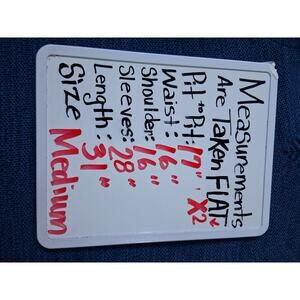 Measurements
Are Taken FLAT
Pit to Pit: 17" X2
Waist: 16"
Shoulder: 16"
Sleeves: 28"
Length: 31"
Size Medium